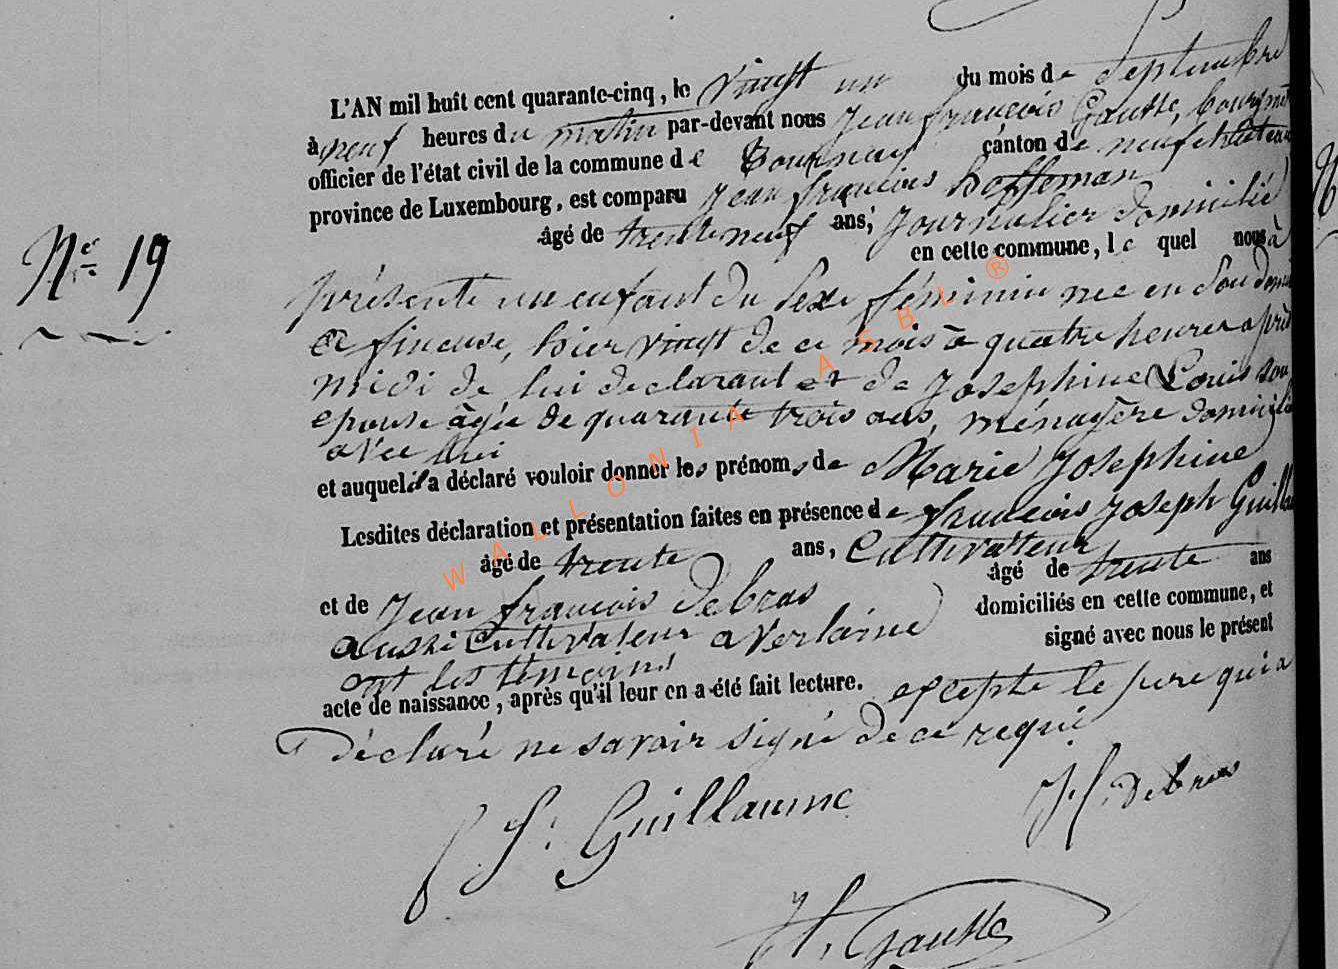 L'AN mil huit cent quarante-cinq, le vingt un du mois de Septembre
à neuf heures du matin par-devant nous Jean françois Gausse, bourgmtre
officier de l'état civil de la commune de Tournay canton de neufchateau
province de Luxembourg, est comparu Jean françois hoffeman
âgé de trente neuf ans, Journalier domicilié
en cette commune, lequel nous à
présenté un enfant du sexe féminin née en Son domi
ce fineuse, hier vingt de ce mois à quatre heures après
midi de lui declarant et de Josephine Louis son
epouse âgée de quarante trois ans, ménagère domicilié
avec lui
et auquel il a déclaré vouloir donner les prénoms de Marie Josephine
Lesdites déclaration et présentation faites en présence de françois Joseph Guillau
âgé de trente ans, Cultivateur
et de Jean françois Debras âgé de trente ans
aussi Cultivateur a Verlaine domiciliés en cette commune, et
ont les témoins signé avec nous le présent
acte de naissance, après qu'il leur en a été fait lecture. excepté le pere qui a
Déclaré ne savoir signé de ce requi
N° 19
f J. Guillaume
J f. Debras
Jf. Gausse
WALLONIA ASBL ®